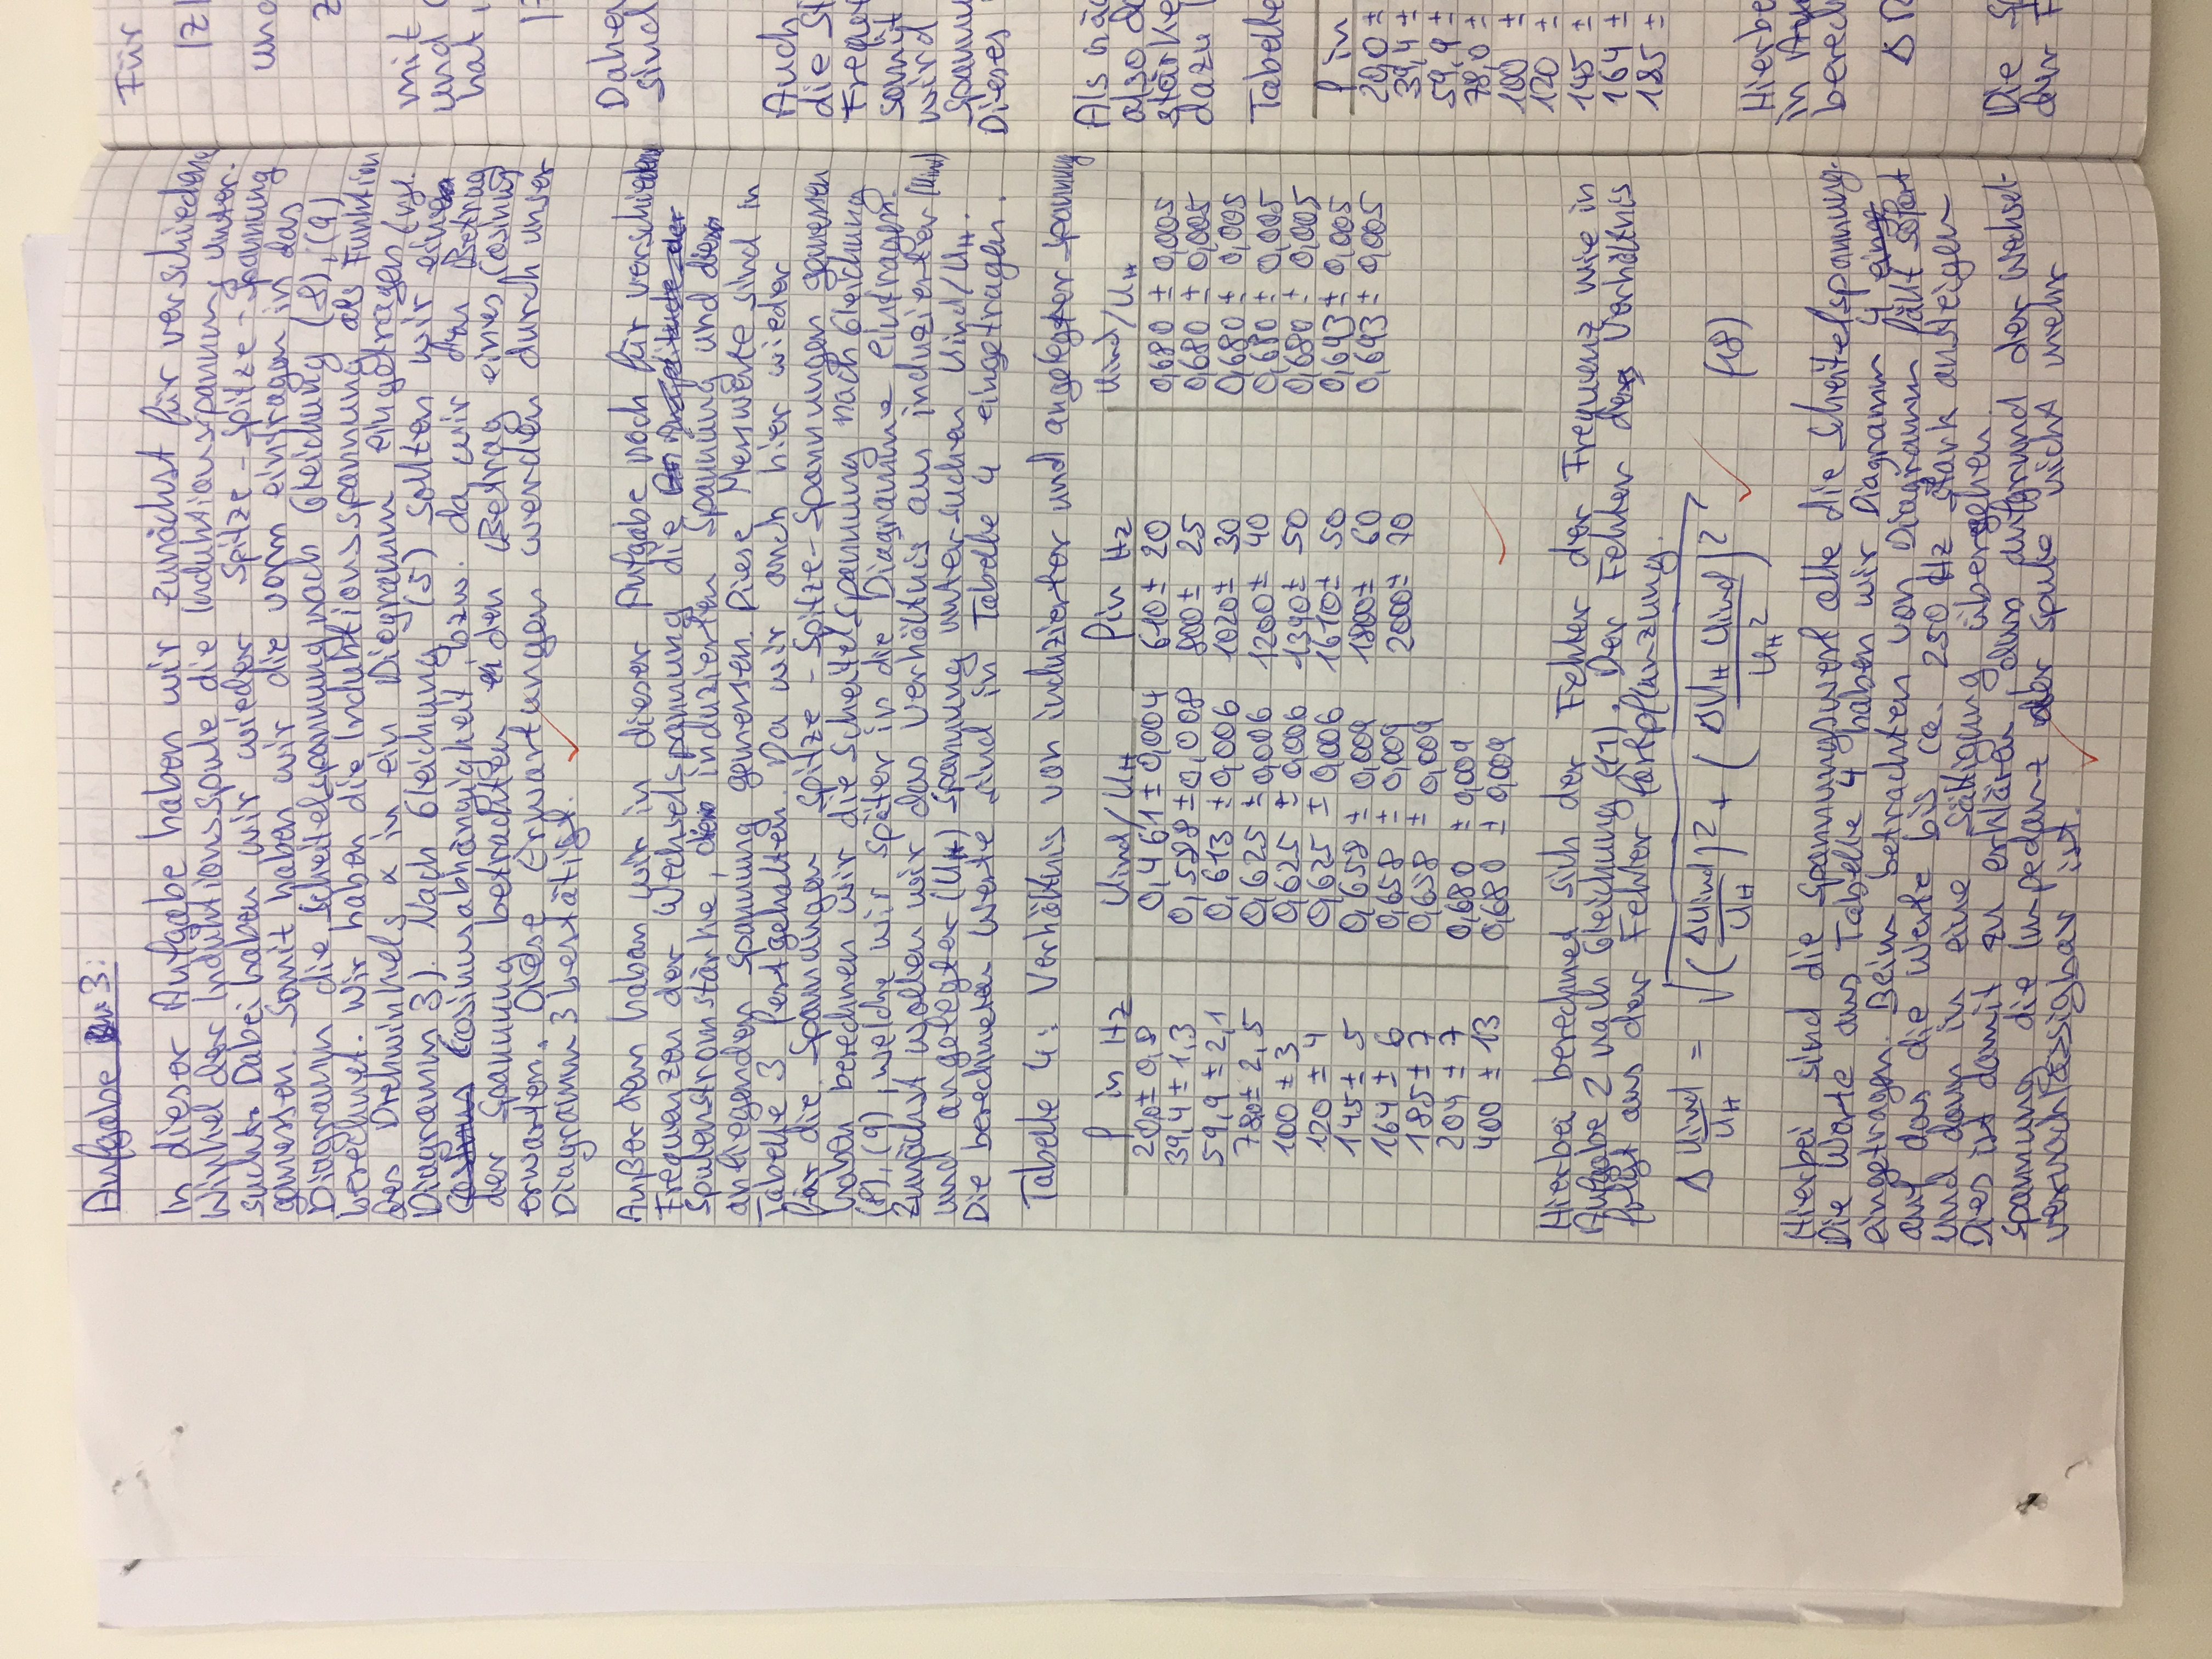 Aufgabe 3:
In dieser Aufgabe haben wir zunächst für verschiedene
Winkel der Induktionsspule die Induktionsspannung unter-
sucht. Dabei haben wir wieder Spitze-Spitze-Spannung
gemessen. Somit haben wir die vorm eintragen in das
Diagramm die Scheitelspannung nach Gleichung (8), (9)
berechnet. Wir haben die Induktionsspannung als Funktion
des Drehwinkels α in ein Diagramm eingetragen (vgl.
Diagramm 3). Nach Gleichung (5) sollten wir eine
Cosinusabhängigkeit, bzw. da wir den Betrag
der Spannung betrachten den Betrag eines Cosinus
erwarten. Diese Erwartungen werden durch unser
Diagramm 3 bestätigt.
Außerdem haben wir in dieser Aufgabe noch für verschiedene
Frequenzen der Wechselspannung die
Spulenstromstärke, die induzierten Spannung und die
anliegenden Spannung gemessen. Diese Messwerte sind in
Tabelle 3 festgehalten. Da wir auch hier wieder
für die Spannungen Spitze-Spitze-Spannungen gemessen
haben berechnen wir die Scheitelspannung nach Gleichung
(8), (9), welche wir später in die Diagramme eintragen.
Zunächst wollen wir das Verhältnis aus induzierter (Uind)
und angelegter (UH) Spannung untersuchen Uind/UH.
Die berechneten Werte sind in Tabelle 4 eingetragen.
Tabelle 4: Verhältnis von induzierter und angelegter Spannung
f in Hz Uind/UH f in Hz Uind/UH
20,0 ± 0,8 0,461 ± 0,004 610 ± 20 0,680 ± 0,005
39,4 ± 1,3 0,588 ± 0,008 800 ± 25 0,680 ± 0,005
59,9 ± 2,1 0,613 ± 0,006 1020 ± 30 0,680 ± 0,005
78,0 ± 2,5 0,625 ± 0,006 1200 ± 40 0,680 ± 0,005
100 ± 3 0,625 ± 0,006 1390 ± 50 0,680 ± 0,005
120 ± 4 0,625 ± 0,006 1610 ± 50 0,693 ± 0,005
145 ± 5 0,658 ± 0,009 1800 ± 60 0,693 ± 0,005
164 ± 6 0,658 ± 0,009 2000 ± 70
185 ± 7 0,658 ± 0,009
204 ± 7 0,680 ± 0,009
400 ± 13 0,680 ± 0,009
Hierbei berechnet sich der Fehler der Frequenz wie in
Aufgabe 2 nach Gleichung (17). Der Fehler des Verhältnis
folgt aus der Fehlerfortpflanzung.
Δ Uind/UH = √((ΔUind/UH)² + (ΔUH Uind/UH²)²) (18)
Hierbei sind die Spannungswert alle die Scheitelspannung.
Die Werte aus Tabelle 4 haben wir Diagramm 4
eingetragen. Beim betrachten von Diagramm fällt sofort
auf das die Werte bis ca. 250 Hz stark ansteigen
und dann in eine Sättigung übergehen.
Dies ist damit zu erklären, dass aufgrund der Wechsel-
spannung die Impedanz der Spule nicht mehr
vernachlässigbar ist.
Für
|z|
und
z
mit
und
hat,
Daher
sind
Auch
die
somit
wird
Dieses
also
dazu
Tabelle
f in
20,0 ±
39,4 ±
59,9 ±
78,0 ±
100 ±
120 ±
145 ±
164 ±
185 ±
Δ
Die
der F